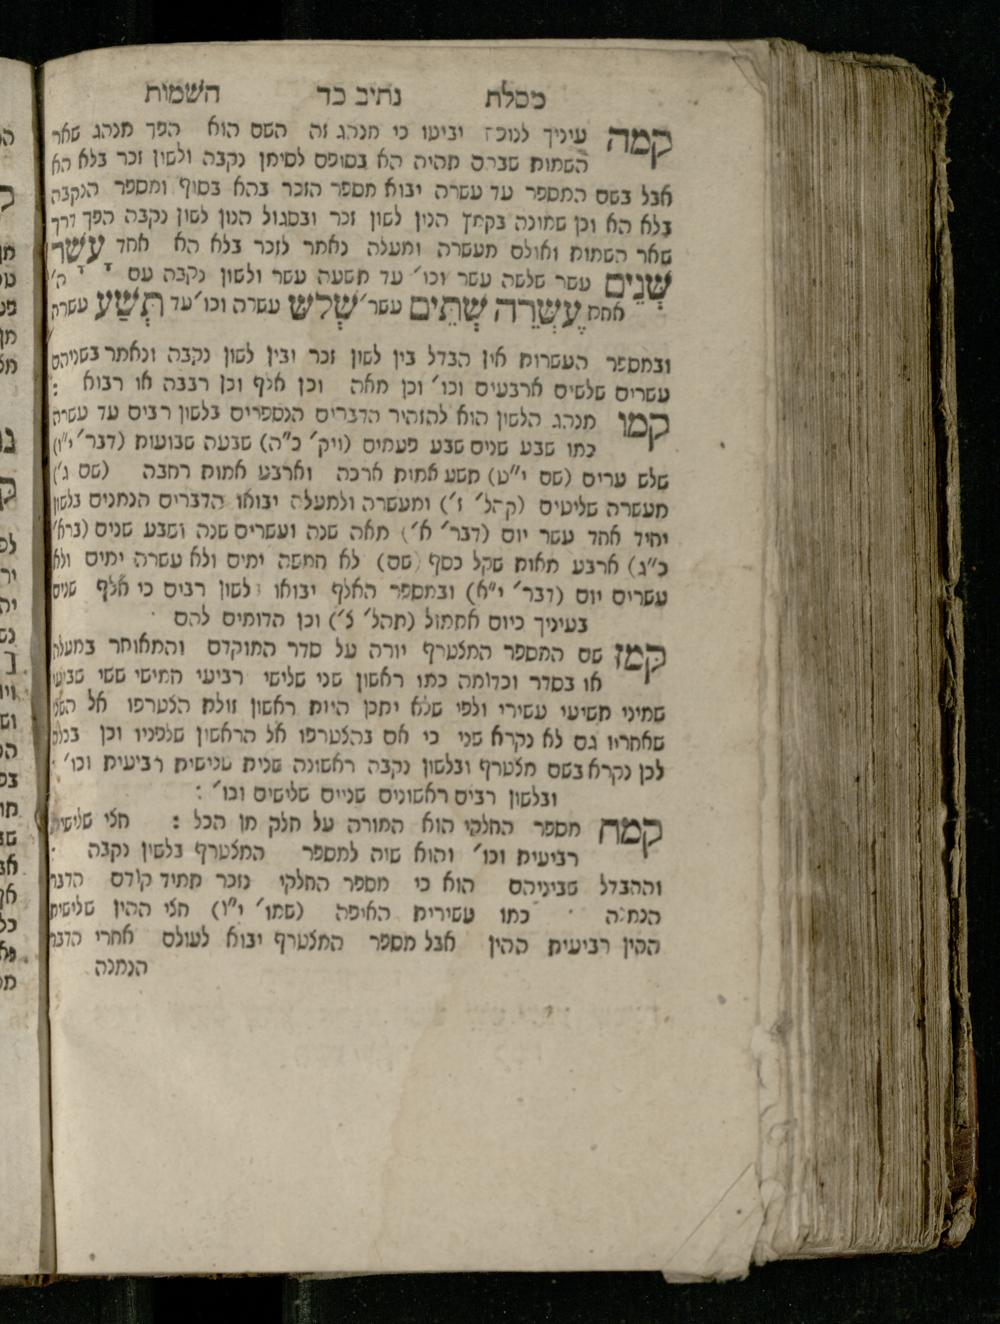 מסלת נתיב כד השמות
קמה עיניך לנוכח יביטו כי מנהג זה השם הוא הפך מנהג שאר
השמות שברם תהיה הא בסופם לסימן נקבה ולשון זכר בלא הא
אבל בשם המספר עד עשרה יבוא מספר הזכר בהא בסוף ומספר הנקבה
בלא הא וכן שמונה בקמץ הנון לשון זכר ובסגול הנון לשון נקבה הפך דרך
שאר השמות ואולם מעשרה ומעלה נאמר לזכר בלא הא אחד עשר
שְׁנֵים עשר שלשה עשר וכו׳ עד תשעה עשר ולשון נקבה עם ה׳
אחת עֶשְׂרֵה שְׁתֵּים עשר׳ שְׁלֹשׁ עשרה וכו׳ עד תְּשַׁע עשרה
ובמספר העשרות אין הבדל בין לשון זכר ובין לשון נקבה ונאמר בשניהם
עשרים שלשים ארבעים וכו׳ וכן מאה וכן אלף וכן רבבה או רבוא :
קמו מנהג הלשון הוא להזהיר הדברים הנספרים בלשון רבים עד עשרה
כמו שבע שנים שבע פעמים (ויק׳ כ״ה) שבעה שבועות (דבר׳ י״ו)
שלש ערים (שם י״ט) תשע אמות ארכה וארבע אמות רחבה (שם ג׳)
מעשרה שליטים (קהל׳ ז׳) ומעשרה ולמעלה יבואו הדברים הנמנים בלשון
יחיד אחד עשר יום (דבר׳ א׳) מאה שנה ועשרים שנה ושבע שנים (ברא׳
כ״ג) ארבע מאות שקל כסף (שם) לא חמשה ימים ולא עשרה ימים ולא
עשרים יום (דבר׳ י״א) ובמספר האלף יבואו לשון רבים כי אלף שנים
בעיניך כיום אתמול (תהל׳ צ׳) וכן הדומים להם
קמז שם המספר המצטרף יורה על סדר המוקדם והמאוחר במעלה
או בסדר וכדומה כמו ראשון שני שלישי רביעי חמישי ששי שביעי
שמיני תשיעי עשירי ולפי שלא יתכן היות ראשון זולת הצטרפו אל השני
שאחריו גם לא נקרא שני כי אם בהצטרפו אל הראשון שלפניו וכן בכלם
לכן נקרא בשם מצטרף ובלשון נקבה ראשונה שנית שלישית רביעית וכו׳
ובלשון רבים ראשונים שניים שלישים וכו׳ :
קמח מספר החלקי הוא המורה על חלק מן הכל : חצי שלישית
רביעית וכו׳ והוא שוה למספר המצטרף בלשון נקבה
וההבדל שביניהם הוא כי מספר החלקי נזכר תמיד קודם הדבר
הנמנה כמו עשירית האיפה (שמו׳ י״ו) חצי ההין שלישית
ההין רביעית ההין אבל מספר המצטרף יבוא לעולם אחרי הדבר
הנמנה